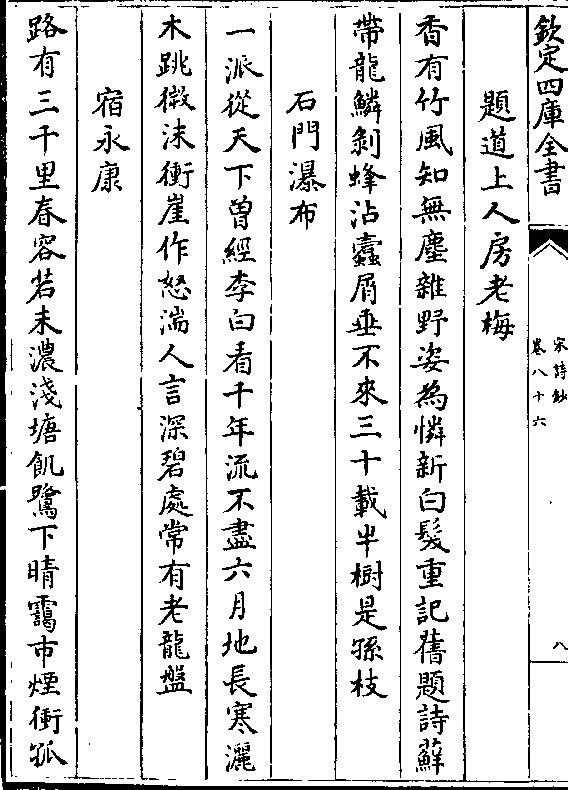 欽定四庫全書
宋詩鈔
卷八十六
八
題道上人房老梅
香有竹風知無塵雜野姿為憐新白髮重記舊題詩蘚
帶龍鱗剝蜂沾蠧屑垂不來三十載半樹是孫枝
石門瀑布
一派從天下曽經李白看千年流不盡六月地長寒灑
木跳微沫衝崖作怒湍人言深碧處常有老龍盤
宿永康
路有三千里春容若未濃淺塘飢鷺下晴靄市煙衝孤